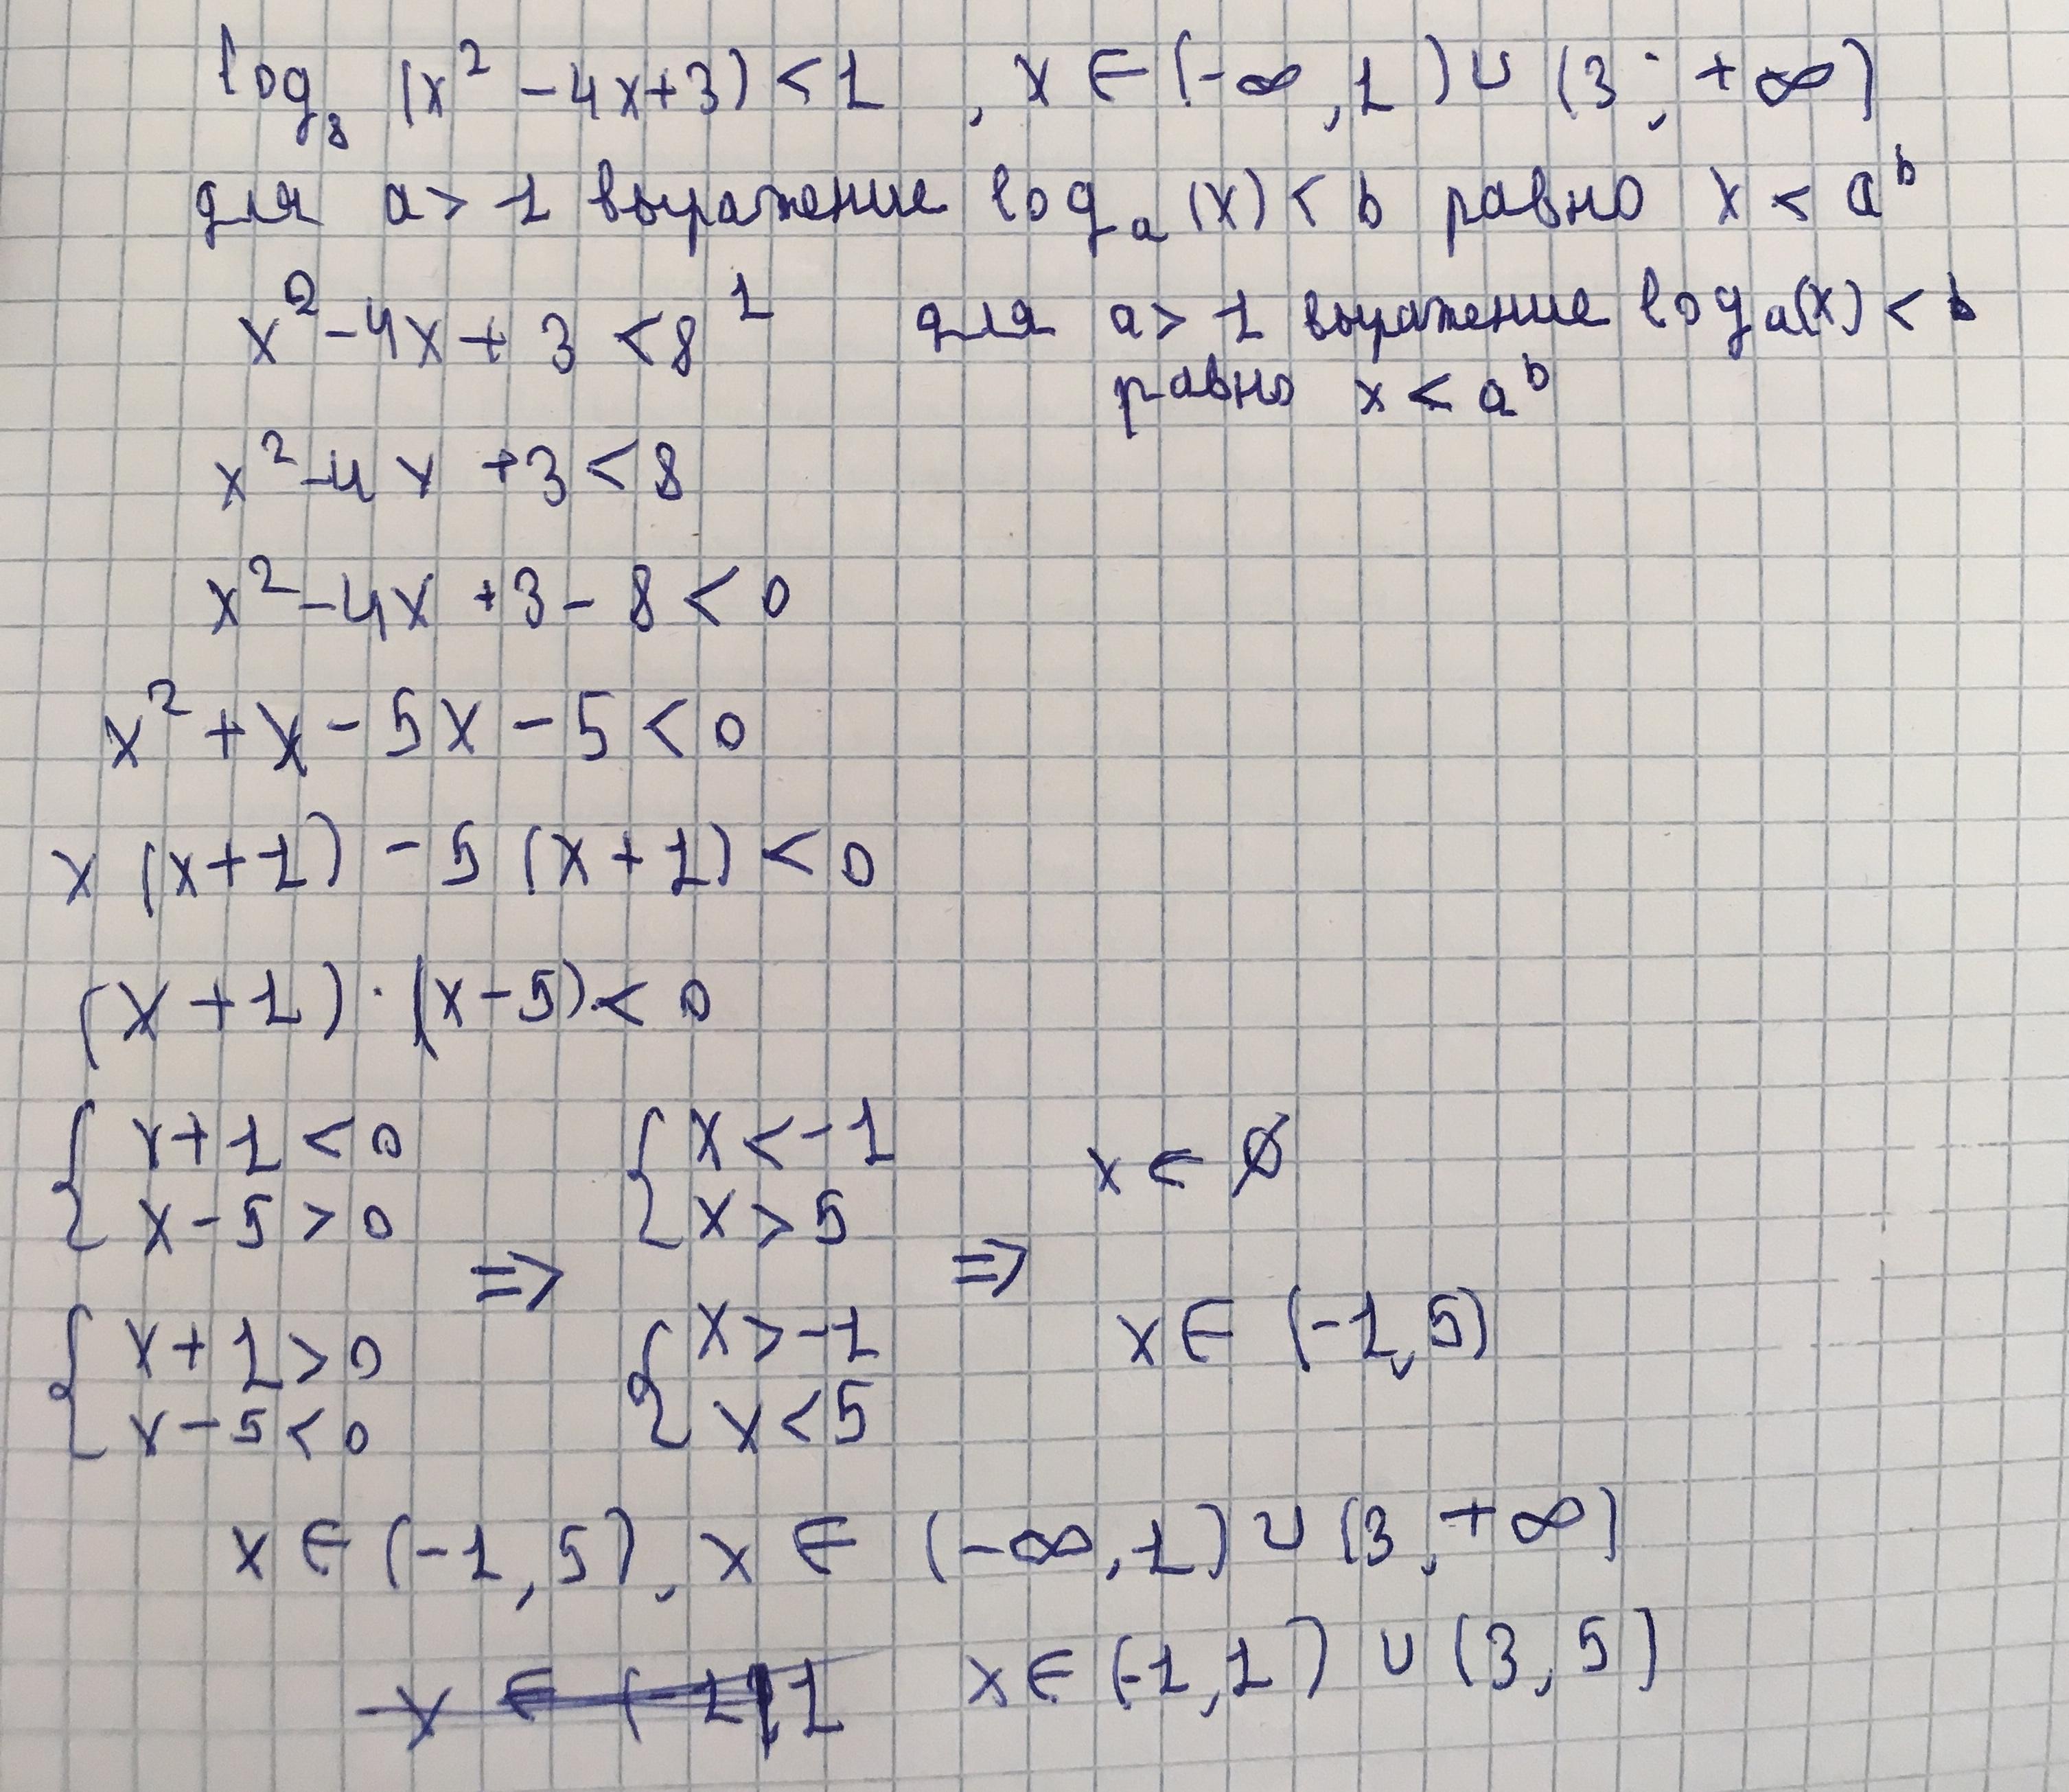 log₈ (x² - 4x+3) < 1 , x ∈ (-∞, 1) ∪ (3; +∞)
для a > 1 выражение logₐ (x) < b равно x < aᵇ
x² - 4x + 3 < 8¹ для a > 1 выражение logₐ(x) < b
равно x < aᵇ
x² - 4x + 3 < 8
x² - 4x + 3 - 8 < 0
x² + x - 5x - 5 < 0
x (x+1) - 5 (x+1) < 0
(x+1) · (x-5) < 0
{ x+1 < 0 { x < -1 x ∈ ∅
x - 5 > 0 x > 5
=> =>
{ x+1 > 0 { x > -1 x ∈ (-1, 5)
x - 5 < 0 x < 5
x ∈ (-1, 5), x ∈ (-∞, 1) ∪ (3, +∞)
x ∈ (-1, 1) ∪ (3, 5)